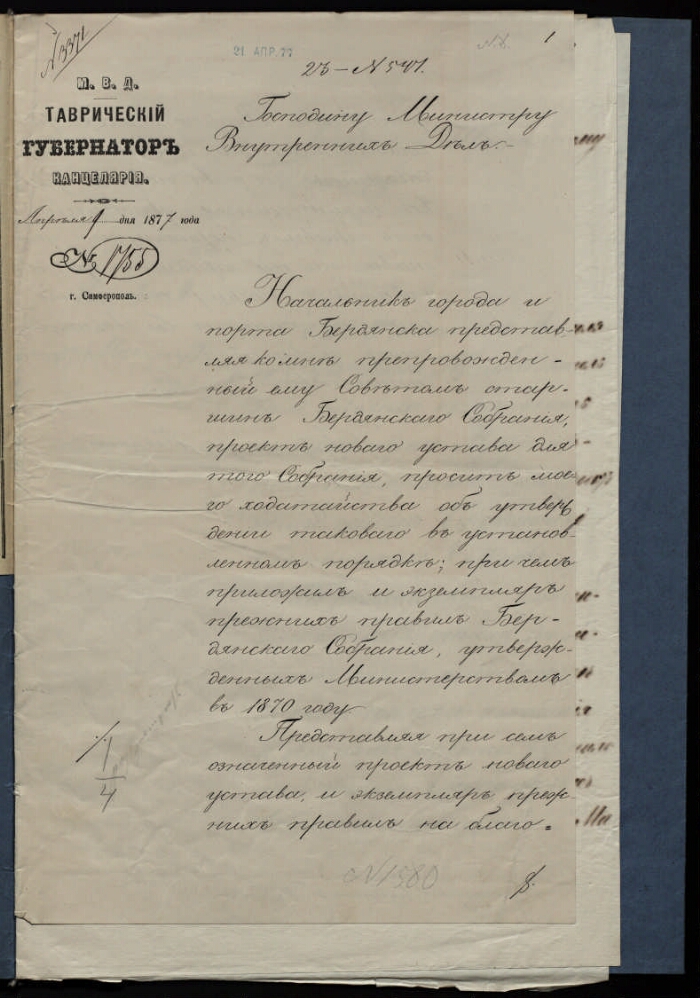 № 3371
21 АПР. 77
№ 8.
1
23 — № 541.
М. В. Д.
ТАВРИЧЕСКІЙ
ГУБЕРНАТОРЪ
КАНЦЕЛЯРІЯ.
Апрѣля 9 дня 1877 года
№ 1755
г. Симферополь.
Господину Министру
Внутреннихъ Дѣлъ.
Начальникъ города и
порта Бердянска представ-
ляя ко мнѣ препровожден-
ный ему Совѣтомъ стар-
шинъ Бердянскаго Собранія,
проектъ новаго устава для
того Собранія, проситъ мое-
го ходатайства объ утверж
деніи таковаго въ установ-
ленномъ порядкѣ; при чемъ
приложилъ и экземпляръ
прежнихъ правилъ Бер-
дянскаго Собранія, утверж-
денныхъ Министерствомъ
въ 1870 году.
Представляя при семъ
означенный проектъ новаго
устава, и экземпляръ преж
нихъ правилъ на благо-
1/4
№ 1580